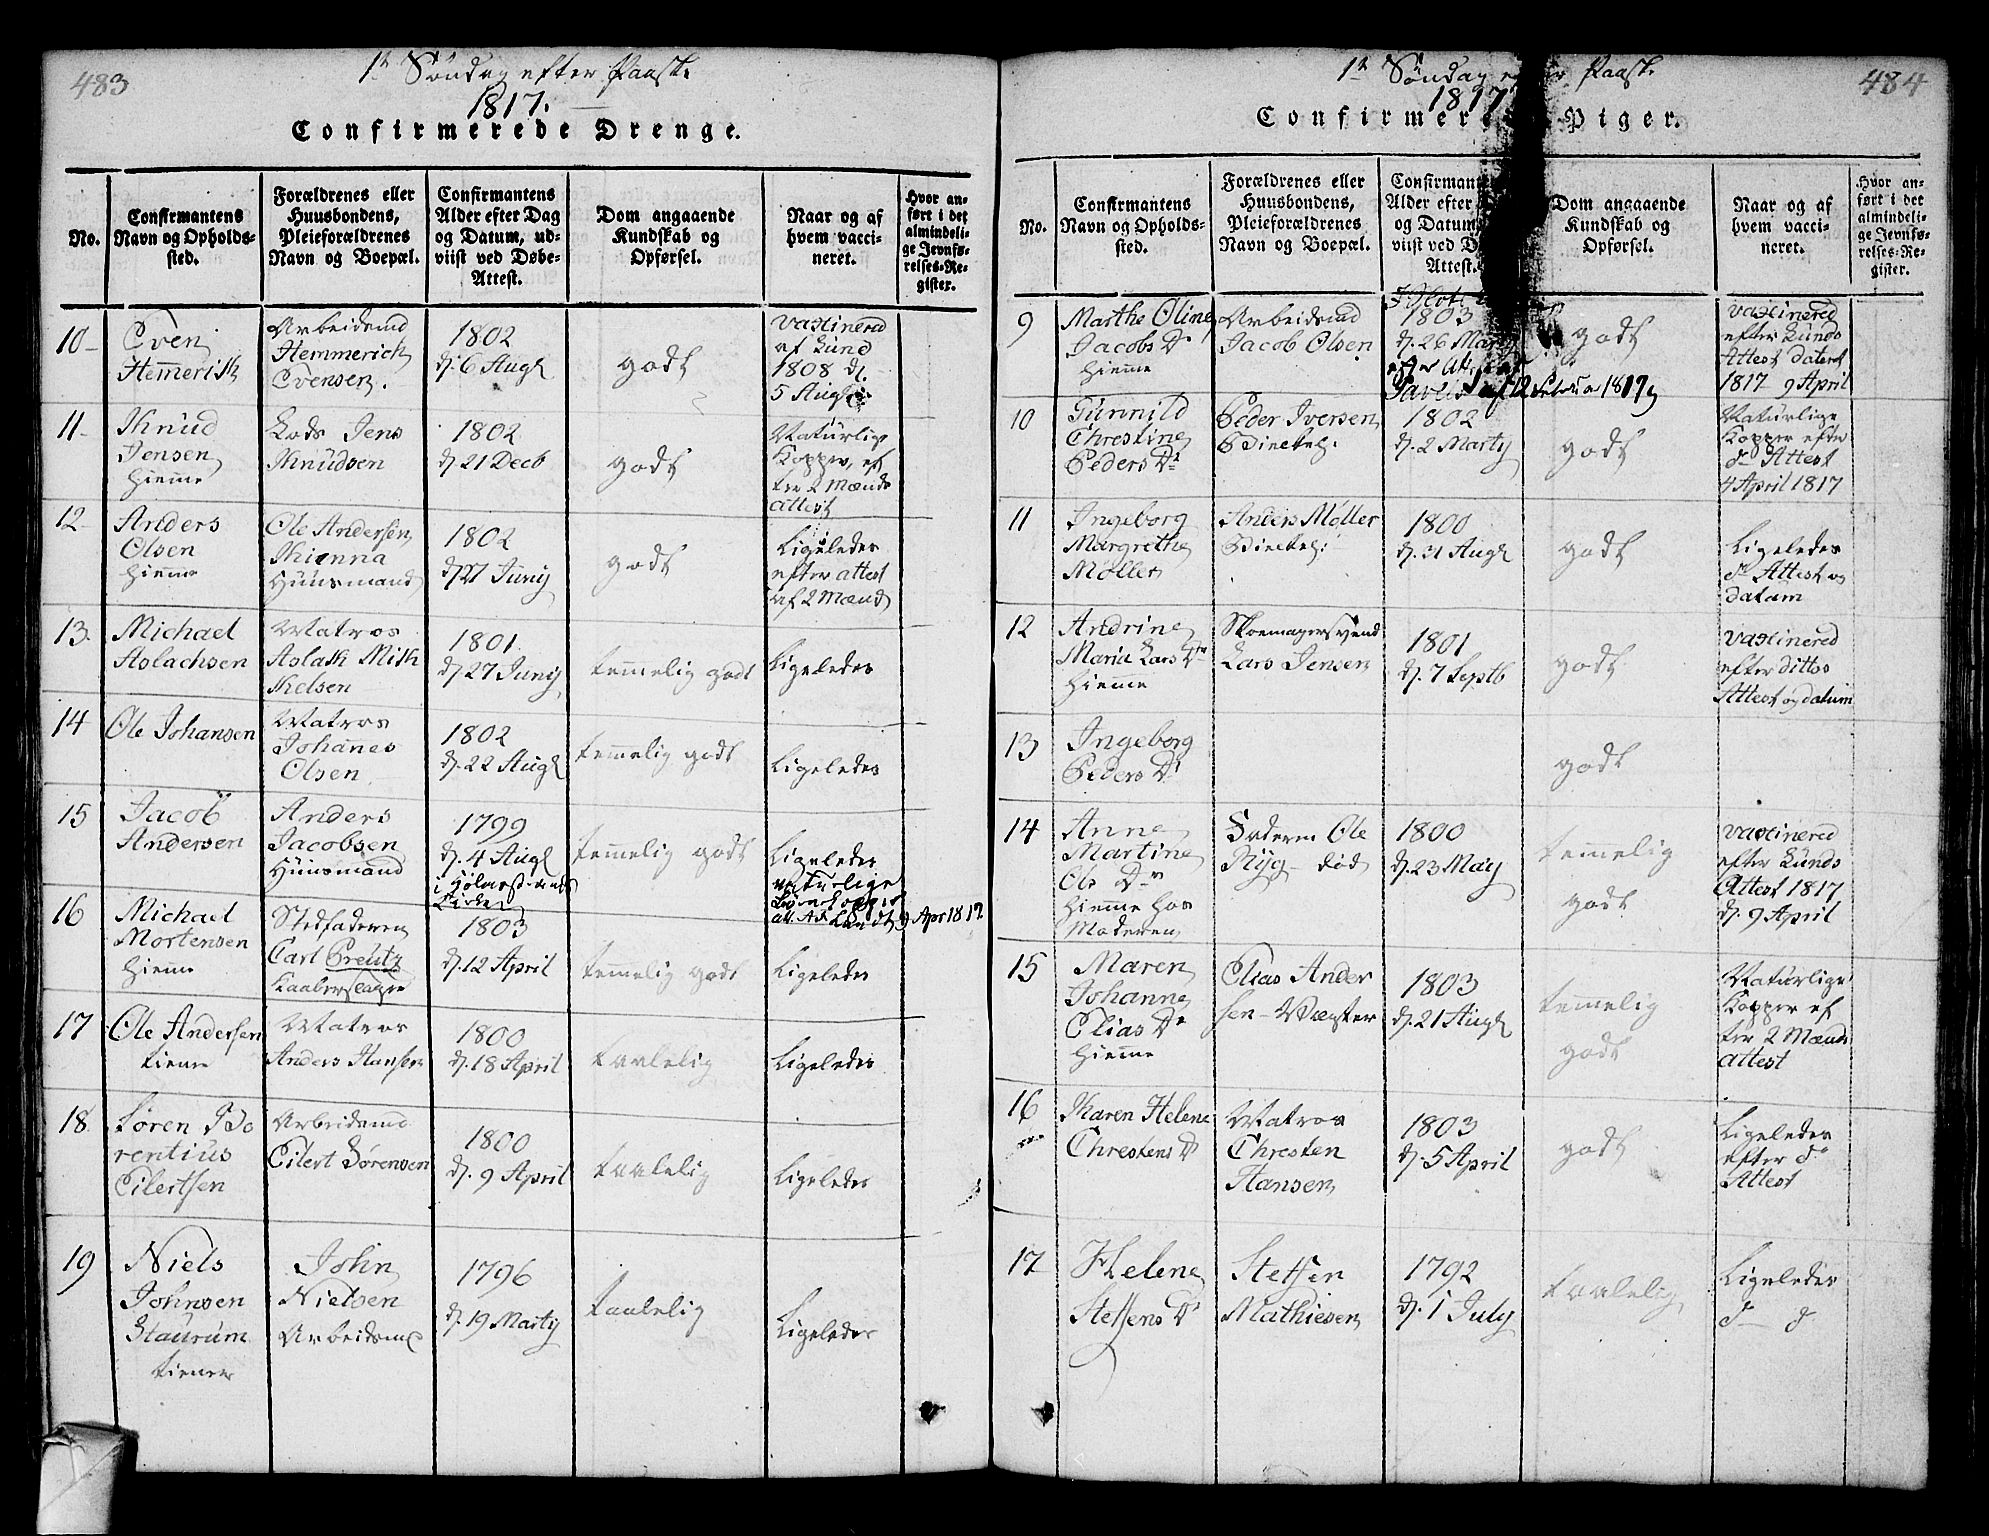 483
1te Søndag efter Paaske
1817.
Confirmerede Drenge.
No.
Confirmantens
Navn og Opholds-
sted.
Forældrenes eller
Huusbondens,
Pleieforældrenes
Navn og Boepæl.
Confirmantens
Alder efter Dag
og Datum, ud-
viist ved Døbe-
Attest.
Dom angaaende
Kundskab og
Opførsel.
Naar og af
hvem vacci-
neret.
Hvor an-
ført i det
almindeli-
ge Jevnfø-
relses-Re-
gister.
10
Even
Hemerik
Arbeidsmd
Hemmerich
Evensen.
1802
d. 6 Augt
godt
vaxinered
af Lund
1808 d.
5 Aug
11
Knud
Jensen
hiemme
Lods Jens
Knudsen
1802
d. 21 Decb
godt
Naturlige
Kopper, ef
ter 2 Mænds
attest
12
Anders
Olsen
hiemme
Ole Andersen
Huusmand
1802
d 27 Juny
godt
Ligeledes
efter attest
af 2 Mænd
13.
Michael
Aslachsen
Matros
Aslak Mik
kelsen
1801
d. 27 Juny
temmelig godt
Ligeledes
14
Ole Johansen
Matros
Johannes
Olsen
1802
d. 22 Augt
temmelig godt
Ligeledes
15
Jacob
Andersen
Anders
Jacobsen
Huusmand
1799
d. 4 Augt
i
Kirke
temmelig godt
Ligeledes
naturlige
att. af Lundt 9 Apr 1817
16
Michael
Mortensen
hieme
Stedfaderen
Carl Preutz
Kaaberslager
1803
d. 12 April
temmelig godt
Ligeledes
17
Ole Andersen
tiener
Matros
Anders Hansen
1800
d. 18 April
taalelig
Ligeledes
18.
Søren Lo
rentius
Eilertsen
Arbeidsmd
Eilert Sørensen
1800
d. 9 April
taalelig
Ligeledes
19
Niels
Johnsen
Staurum
tiener
John
Nielsen
Arbeidsmd
1796
d. 19 Marty
taalelig
Ligeledes
484
1te Søndag efter Paaske
1817
Confirmerede Piger.
No.
Confirmantens
Navn og Opholds-
sted.
Forældrenes eller
Huusbondens,
Pleieforældrenes
Navn og Boepæl.
Confirmant
Alder efter
og Datum
viist ved D
Attest.
Dom angaaende
Kundskab og
Opførsel.
Naar og af
hvem vacci-
neret.
Hvor an-
ført i det
almindeli-
ge Jevnfø-
relses-Re-
gister.
9
Marthe Oline
Jacobs Dr
hiemme
Arbeidsmd
Jacob Olsen
1803
d. 26 Marty
godt
vaxinered
efter Lunds
Attest dateret
1817 9 April
10
Gunnild
Chrestine
Peders Dr
Peder Iversen
1802
d. 2 Marty
godt
Naturlige
Kopper efter
do Attest
4 April 1817
11
Ingeborg
Margrethe
Møller
Anders Møller
1800
d. 31 Augt
godt
Ligeledes
do Attest og
datum
12
Andrine
Maria Lars Dr
hiemme
Skoemagersvend
Lars Jensen
1801
d. 7 Septb
godt
vaxinered
efter dittos
Attest og datum
13
Ingeborg
Peders Dr
godt
14
Anne
Martine
Ols Dr
hiemme hos
Moderen
Faderen Ole
Ryg død
1800
d. 23 May
temmelig
godt
vaxinered
efter Lunds
Attest 1817
d. 9 April
15
Maren
Johanne
Elias Dr
hiemme
Elias Ander
sen Vægter
1803
d. 21 Augt
temmelig
godt
Naturlige
Kopper ef
ter 2 Mænds
attest
16
Karen Helene
Chrestens Dr
Matros
Chresten
Hansen
1803
d. 5 April
godt
Ligeledes
efter do
Attest
17
Helene
Steffens Dr
Steffen
Mathiesen
1792
d. 1 July
taalelig
Ligeledes
do do